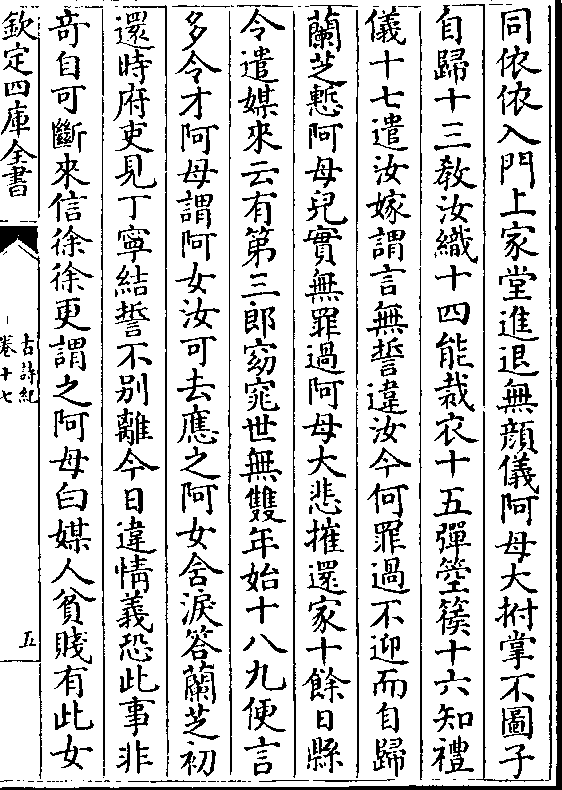 同依依入門上家堂進退無顔儀阿母大拊掌不圖子
自歸十三教汝織十四能裁衣十五彈箜篌十六知禮
儀十七遣汝嫁謂言無誓違汝今何罪過不迎而自歸
蘭芝慙阿母兒實無罪過阿母大悲摧還家十餘日縣
令遣媒來云有第三郎窈窕世無雙年始十八九便言
多令才阿母謂阿女汝可去應之阿女含淚答蘭芝初
還時府吏見丁寧結誓不别離今日違情義恐此事非
竒自可斷來信徐徐更謂之阿母白媒人貧賤有此女
欽定四庫全書
古詩紀
卷十七
五